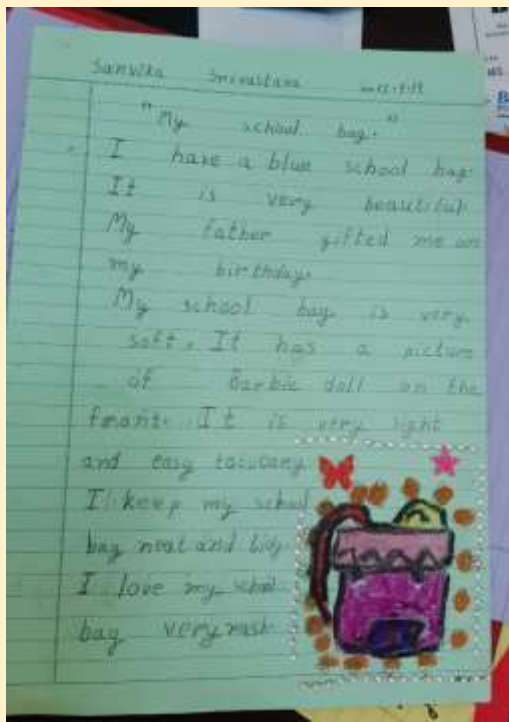 Sanvika Srivastava
"My school bag."
I have a blue school bag.
It is very beautiful.
My father gifted me on
my birthday.
My school bag is very
soft. It has a picture
of Barbie doll on the
front. It is very light
and easy to carry
I keep my school
bag neat and tidy.
I love my school
bag very much